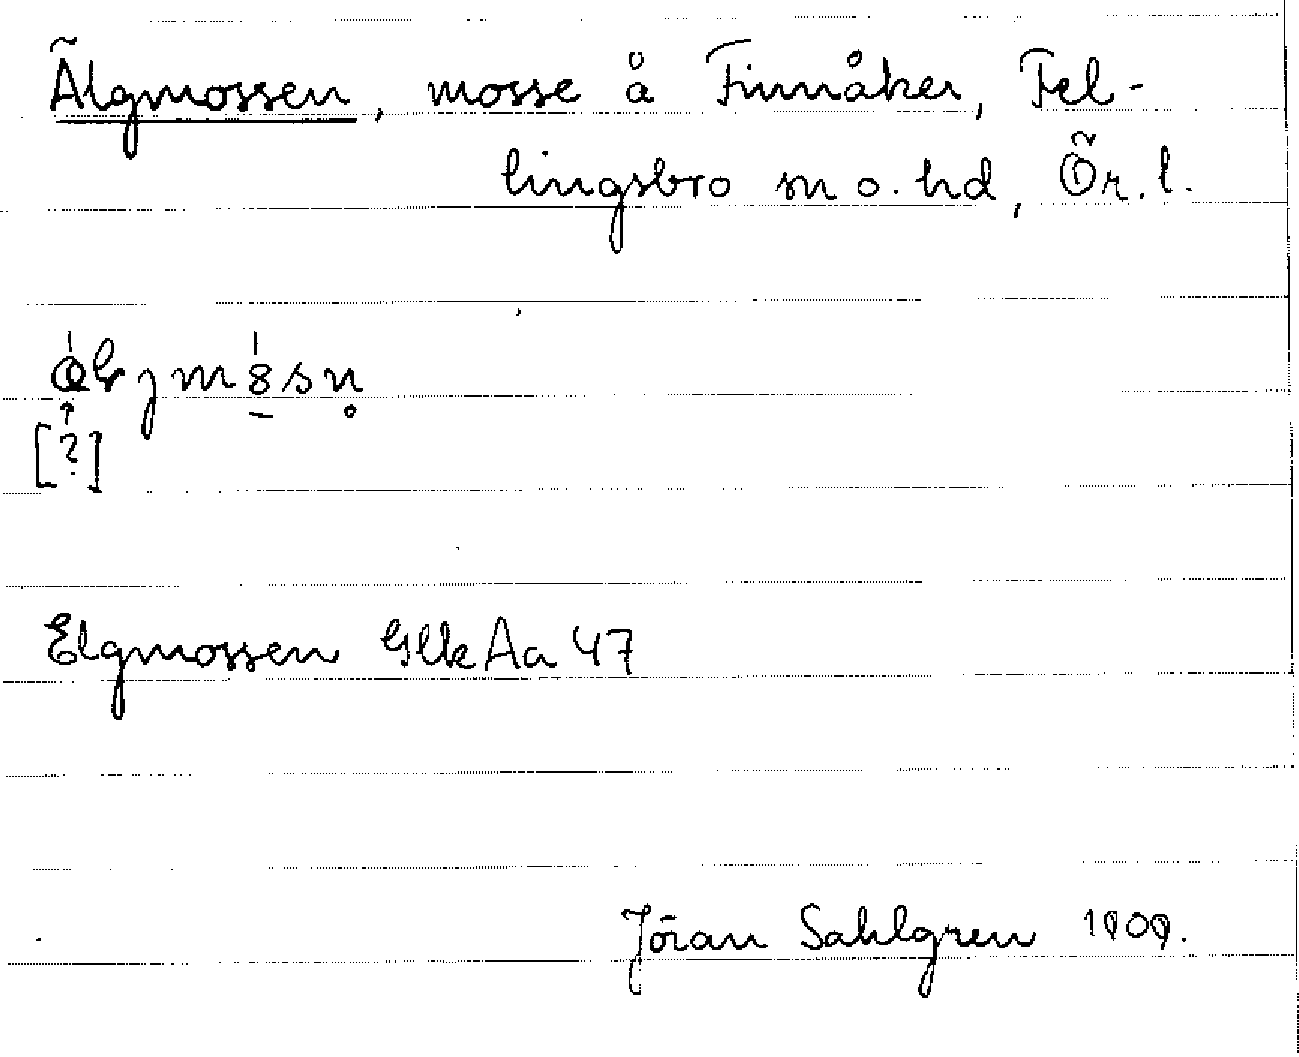 Älgmossen, mosse å Finnåker, Fel-
lingsbro sn o. hd, Ör. l.
[?]
Elgmossen GllkAa 47
Jöran Sahlgren 1909.